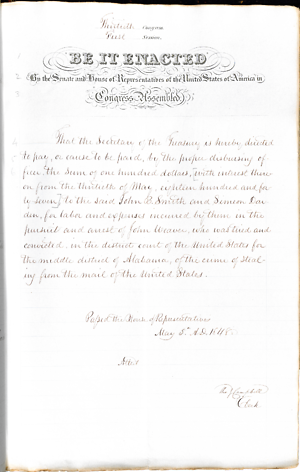 Thirtieth Congress
First Session,
BE IT ENACTED
By the Senate and House of Representatives of the United States of America in
Congress Assembled,
That the Secretary of the Treasury is hereby directed
to pay, or cause to be paid, by the proper disbursing of-
ficer, the sum of one hundred dollars, with interest there
on from the thirtieth of May, eighteen hundred and for
ty seven, to the said John B. Smith and Simeon Dar
den, for labor and expenses incurred by them in the
pursuit and arrest of John Weaver, who was tried and
convicted, in the district court of the United States for
the middle district of Alabama, of the crime of steal-
ing from the mail of the United States.
Passed the House of Representatives
May 5, A.D. 1848.
Attest
Tho. J. Campbell
Clerk